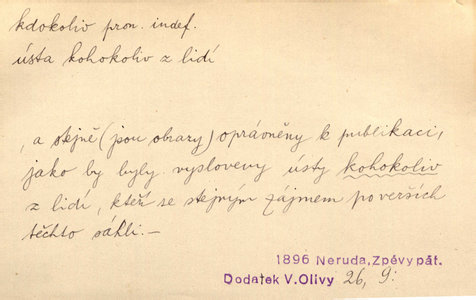 kdokoliv pron. indef.
ústa kohokoliv z lidí
, a stejně (jsou obrazy) oprávněny k publikaci,
jako by byly vysloveny ústy kohokoliv
z lidí, kteří se stejným zájmem po verších
těchto sáhli.—
1896 Neruda, Zpěvy pát.
Dodatek V. Olivy 26, 9: